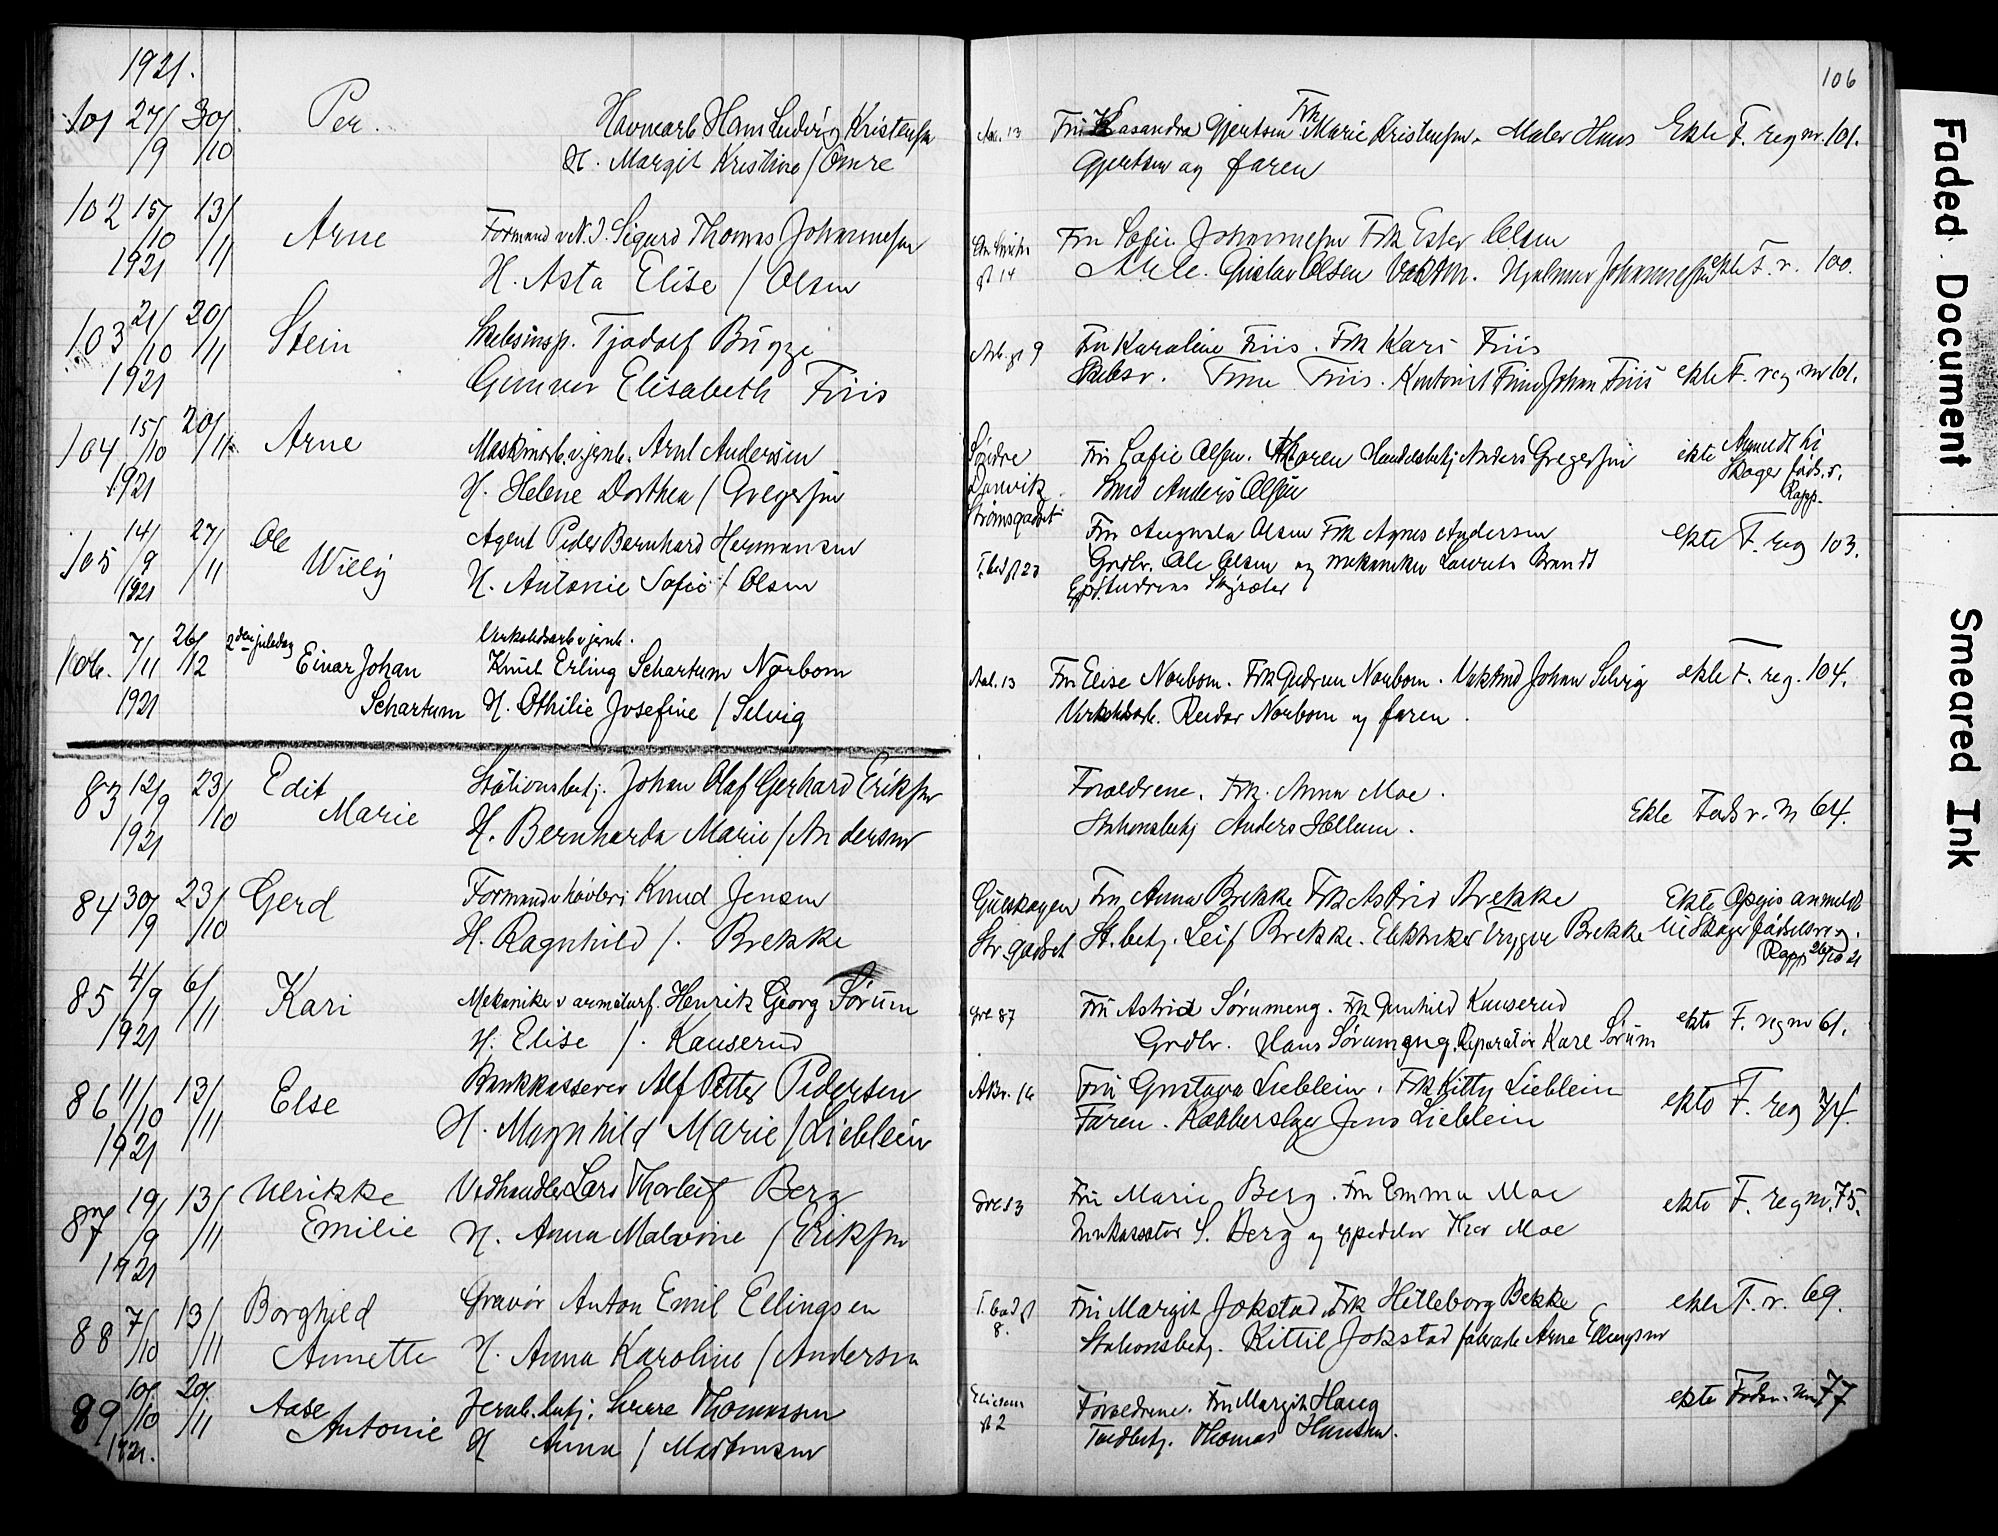 1921.
106
101 27/9 30/10 Per. Havnearb Hans Ludvig Kristensen
H. Margit Kristine / Omre
13 Fru Kasandra Gjertsen Frk Marie Kristensen. Maler Hans
Gjertsen og faren
Ekte F. reg nr. 101.
102 15/10 1921 13/11 Arne Formand v N. J. Sigurd Thomas Johannesen
H. Asta Elise / Olsen
14 Fru Sofie Johannesen Frk Ester Olsen
Gustav Olsen Hjalmar Johannesen
ekte F. r. 100.
103 21/10 1921 20/11 Stein Skibsinsp. Tjodolf Bugge
Gunvor Elisabeth Friis
9 Fru Karoline Friis. Frk Kari Friis
Skibsr. Friis. Kontorist Finn Johan Friis
ekte F. reg. nr 101.
104 15/10 1921 20/11 Arne Maskinarb. v. jernb. Arnt Andersen
H. Helene Dorthea / Gregersen
Søndre Danvik Strømsgodset
Fru Sofie Olsen. Faren Handelsbetj Anders Gregersen
Smed Anders Olsen
ekte Anmeldt til
Skoger føds. r.
Rapp.
105 14/9 1921 27/11 Ole Willy Agent Peder Bernhard Hermansen
H. Antonie Sofie / Olsen
Fru Augusta Olsen Frk Agnes Andersen
Grdbr. Ole Olsen og mekaniker Laurits Brandt
ekte F. reg 103.
106. 7/11 1921 26/12 2den juledag Einar Johan Schartum
Verkstedsarb v jernb.
Knut Erling Schartum Norbom
H. Othilie Josefine / Selvig
13 Fru Elise Norbom. Frk Gudrun Norbom. Johan Selvig
Verkstedsarb. Reidar Norbom og faren.
ekte F. reg. 104.
83 12/9 1921 23/10 Edit Marie Stationsbetj. Johan Olaf Gerhard Eriksen
H. Bernharda Marie / Andersen
Forældrene. Frk. Anna Moe.
Stationsbetj Anders Hellum.
Ekte Føds r. N 64.
84 30/9 23/10 Gerd Formand v høvleri Knud Jensen
H. Ragnhild /. Brekke
Gulskogen Str. godset
Fru Anna Brekke Frk Astrid Brekke
St. betj. Leif Brekke. Elektriker Trygve Brekke
Ekte Opgis anmeldt
til Skoger fødselsreg.
Rapp 26/10 21
85 4/9 1921 6/11 Kari Mekaniker v armaturf. Henrik Georg Sørum
H. Elise /. Kauserud
87 Fru Astrid Sørumeng. Frk Gunhild Kauserud
Grdbr. Hans Sørumeng. Reparatør Kare Sørum
ekte F. reg nr 61.
86 11/10 1921 13/11 Else Bankkasserer Alf Petter Pedersen
H. Magnhild Marie / Lieblein
Fru Gustava Lieblein. Frk Kitty Lieblein
Faren. Kobberslager Jens Lieblein
ekte F. reg 74.
87 19/9 1921 13/11 Ulrikke Emilie Vedhandler Lars Thorleif Berg
H. Anna Malvine / Eriksen
Fru Marie Berg. Fru Emma Moe
Inkassator S. Berg og Thor Moe
ekte F. reg nr. 75.
88 7/10 13/11 Borghild Annette Gravør Anton Emil Ellingsen
H. Anna Karoline / Andersen
8. Fru Margit Jokstad Frk Hilleborg Bekke
Stationsbetj. Kittil Jokstad Arne Ellingsen
ekte F. r. 69.
89 10/10 1921. 20/11 Aase Antonie Jernb. betj. Sverre Thomassen
H Anna / Mortensen
2 Forældrene. Fru Margit Haug
Toldbetj. Thomas Hansen.
ekte Fødsr. nr 77
Faded Document
Smeared Ink